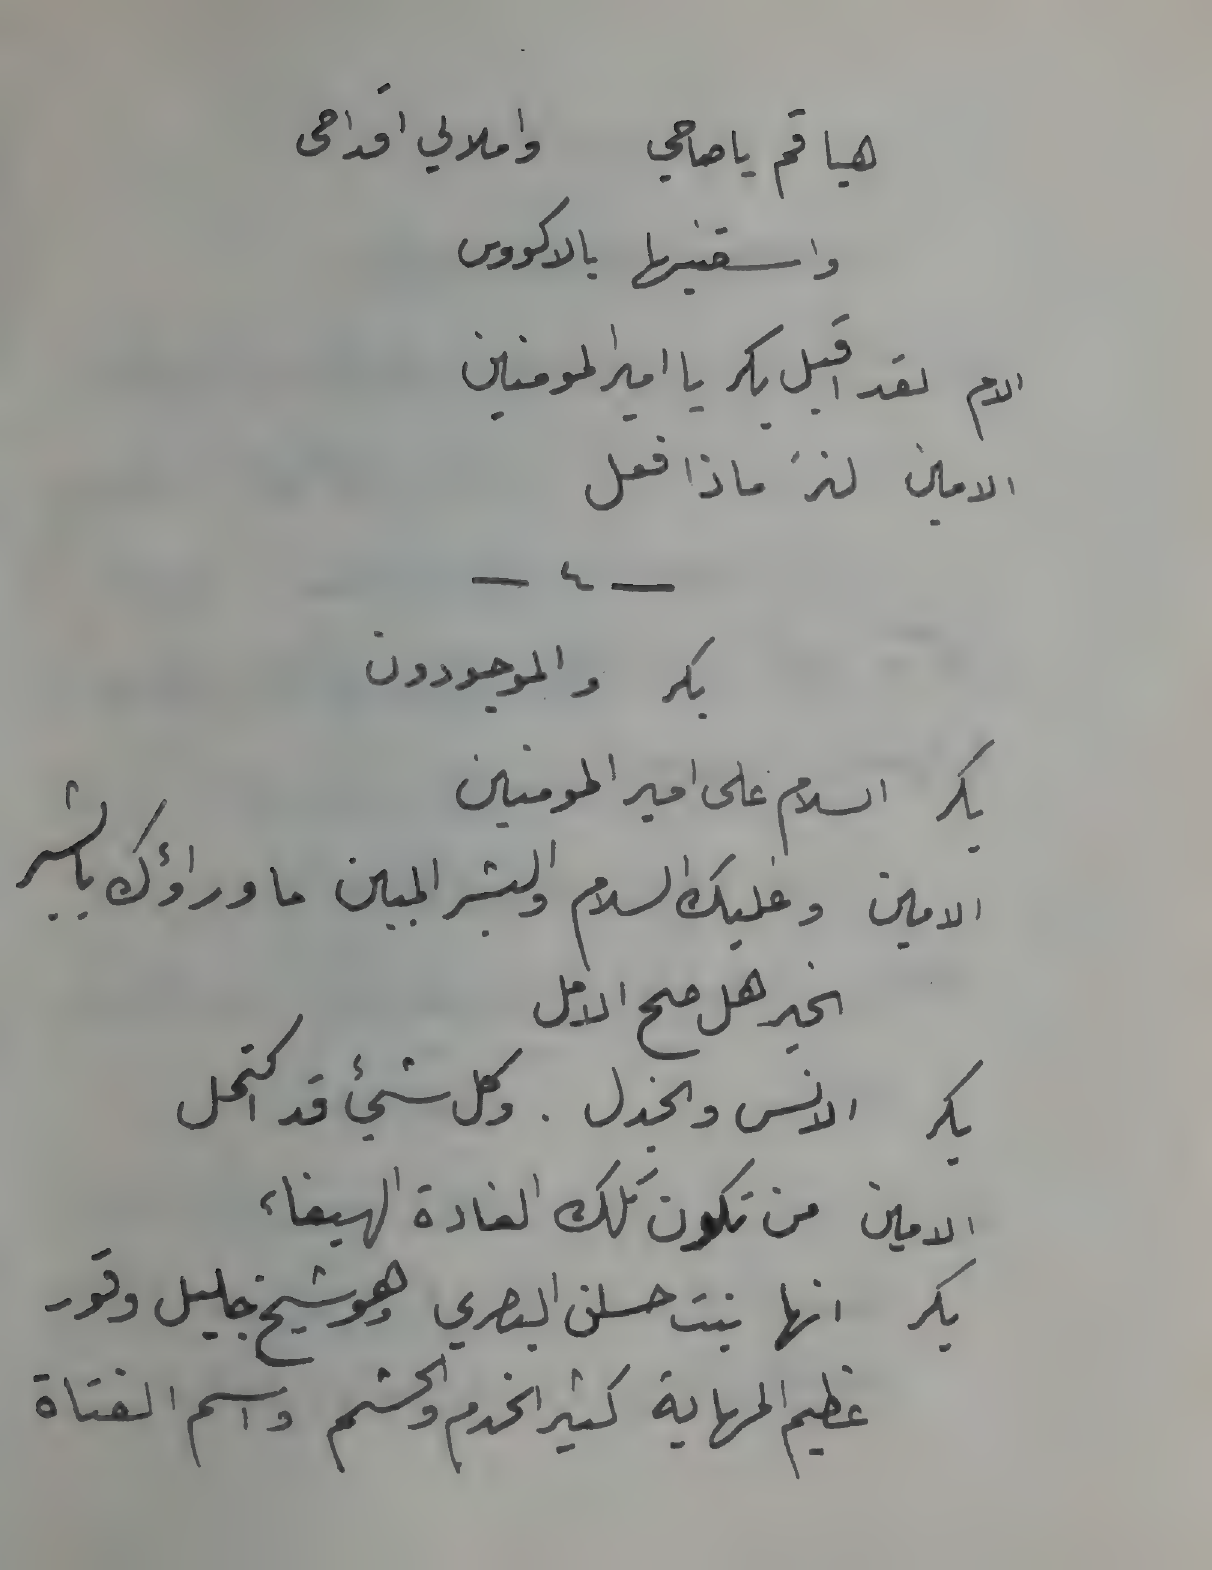 هيا قم يا صاحي واملالي اقداحى
واسقنيها بالاكووس
الام لقد اقبل بكر يا امير المومنين
الامين لنرَ ماذا فعل
— ٤ —
بكر والموجودون
بكر السلام على امير المومنين
الامين وعليك السلام والبشر المبين ما وراؤك يا بشير
الخير هل صح الامل
بكر الانس والجذل . وكل شيئ قد اكتمل
الامين من تكون تلك الغادة الهيفاء
بكر انها بنت حسن البصري وهو شيخ جليل وقور
عظيم المهابة كثير الخدم والحشم واسم الفتاة